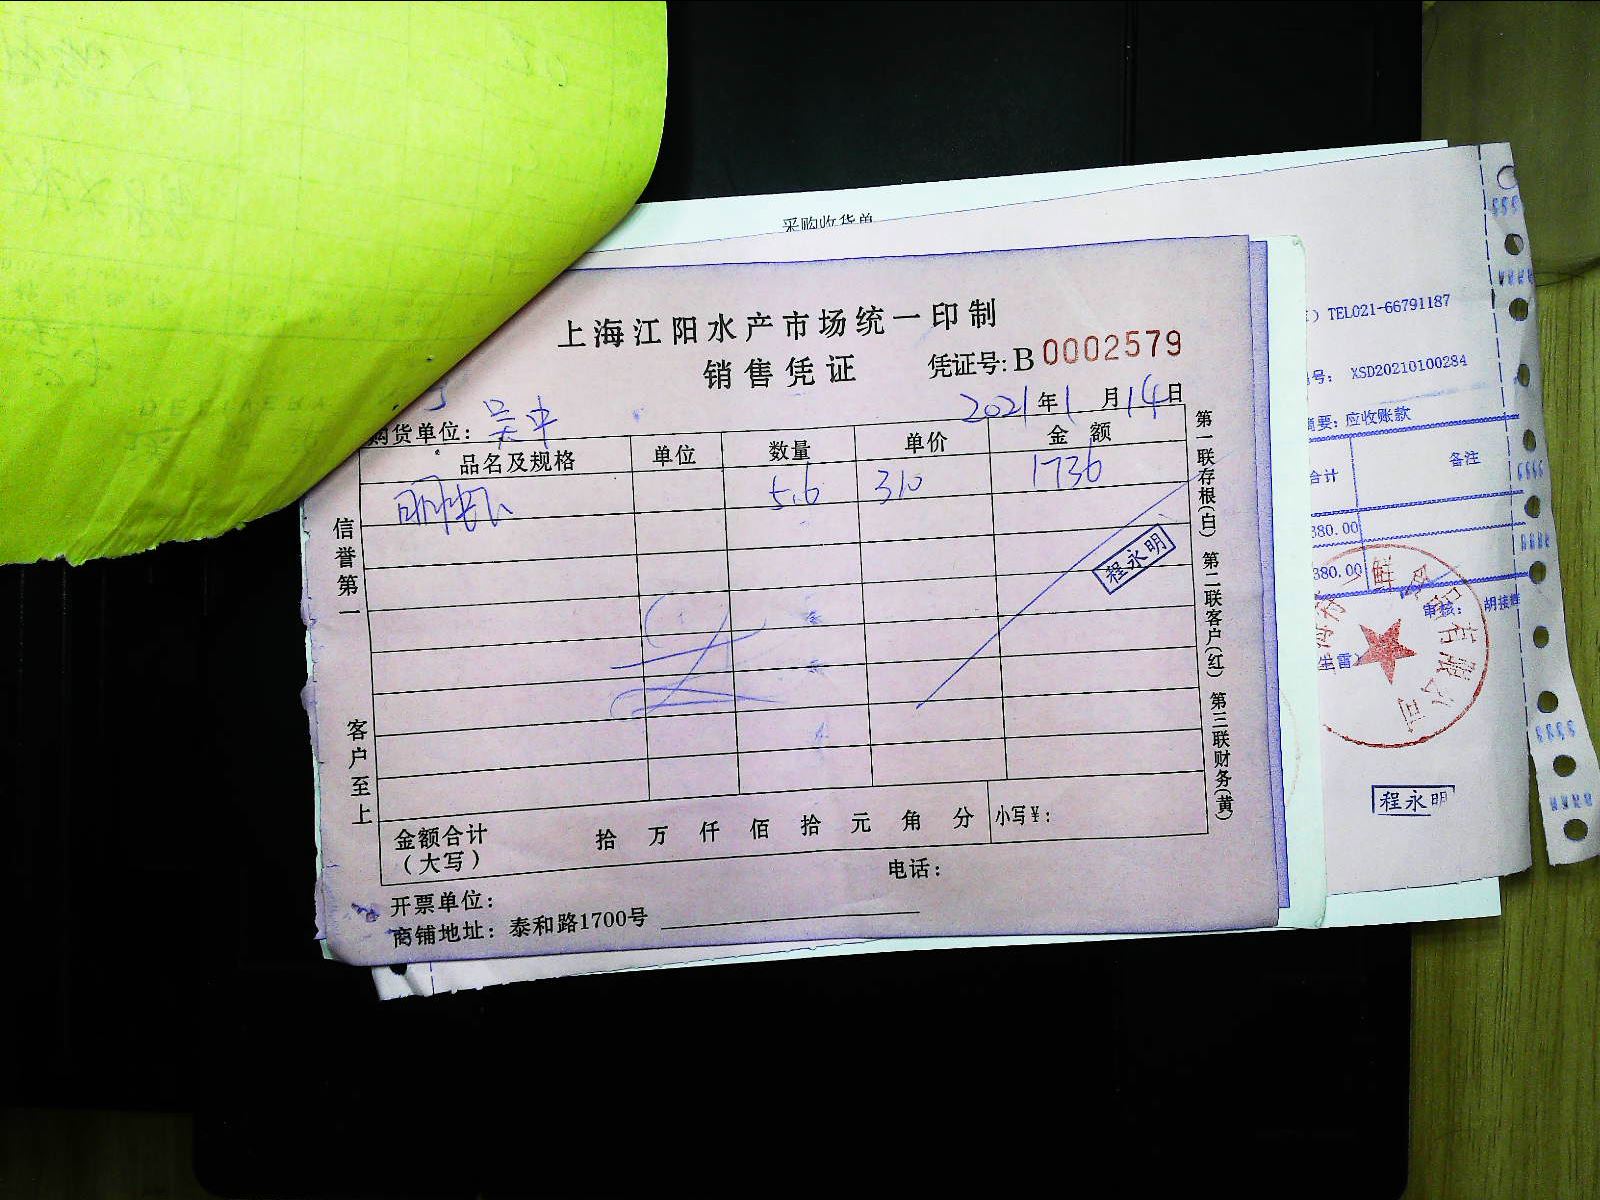 采购收货单
上海江阳水产市场统一印制
销售凭证
凭证号: B 0002579
2021年1月14日
购货单位: 吴中
品名及规格 单位 数量 单价 金额
5.6 310 1736
程永明
信誉第一
客户至上
金额合计
(大写)
拾 万 仟 佰 拾 元 角 分
小写¥:
电话:
开票单位:
商铺地址: 泰和路1700号
第一联存根(白) 第二联客户(红) 第三联财务(黄)
) TEL021-66791187
号: XSD20210100284
摘要: 应收账款
合计 备注
380.00
380.00
审核: 胡接
有限公司
程永明